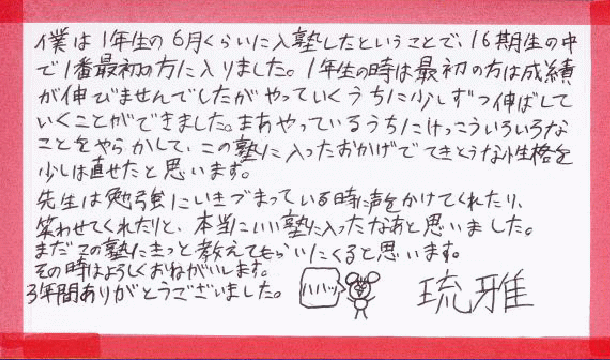 僕は1年生の6月くらいに入塾したということで、16期生の中
で1番最初の方に入りました。1年生の時は最初の方は成績
が伸びませんでしたがやっていくうちに少しずつ伸ばして
いくことができました。まあやっているうちにけっこういろいろな
ことをやらかして、この塾に入ったおかげでてきとうな性格を
少しは直せたと思います。
先生は勉強にいきづまっている時に声をかけてくれたり、
笑わせてくれたりと、本当にいい塾に入ったなあと思いました。
まだこの塾にきっと教えてもらいにくると思います。
その時はよろしくおねがいします。
3年間ありがとうございました。
ハハハッ
琉雅